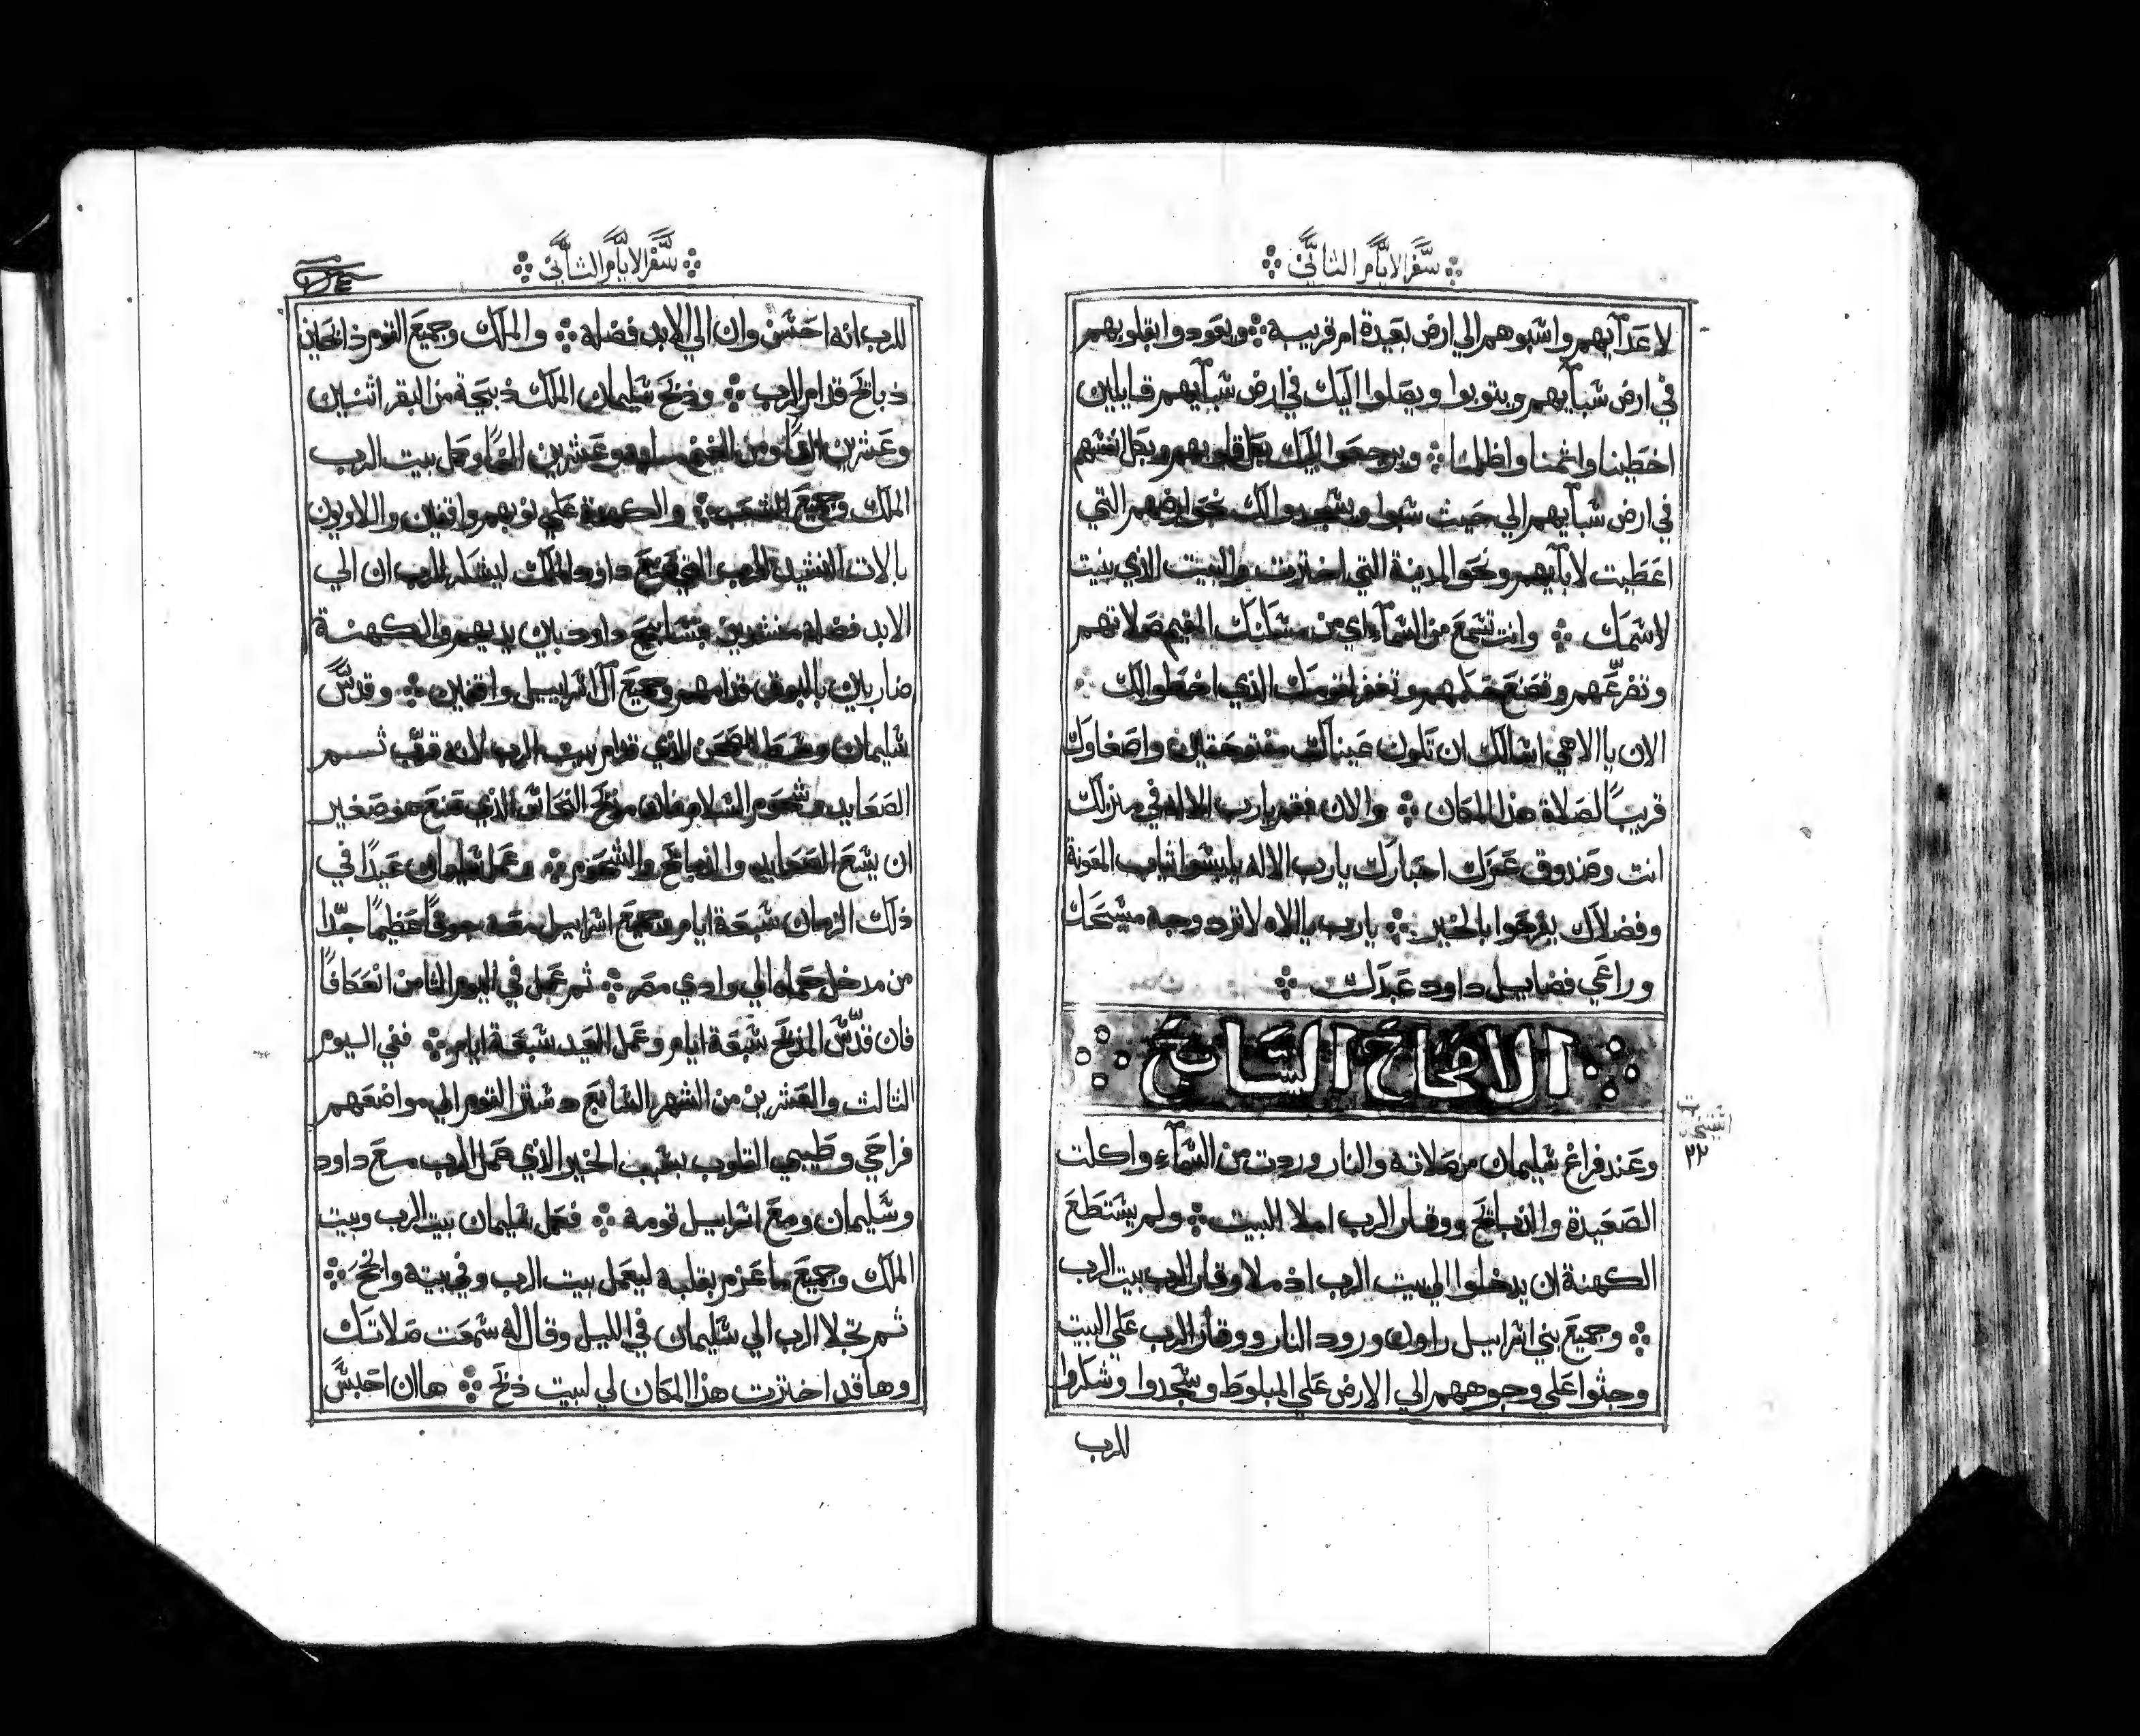 سفر الايام الثاني
لاعدآيهم واسبوهم الي ارض بعيدة ام قريبة ويعودوا بقلوبهم
في ارض سبآيهم ويتوبوا ويصلوا اليك في ارض سبآيهم قايلين
اخطينا واثمنا واظلمنا ويرجعوا اليك بكل قلوبهم وبكل انفسهم
في ارض سبآيهم الي حيث سبوا ويسجدوا لك نحو ارضهم التي
اعطيت لابآيهم ونحو المدينة التي اخترت والبيت الذي بنيت
لاسمك وانت تسمع من السمآء اي من مسكنك المقيم صلاتهم
وتضرعهم وتصنع حكمهم وتغفر لقومك الذي اخطوا لك
الان يا الاهي اسالك ان تكون عيناك مفتوحتين واصغاوك
قريبًا لصلاة هذا المكان والان فقم يارب الاله في منزلك
انت وصندوق عزك احبارك يارب الاله يلبسوا ثياب المعونة
وفضلاك يفرحوا بالخير يارب ياالاه لا ترد وجه مسيحك
وراعي فضايل داود عبدك
الاصحاح السابع
وعند فراغ سليمان من صلاته والنار وردت من السمآء واكلت
الصعيدة والذبايح ووقار الرب املا البيت ولم يستطع
الكهنة ان يدخلوا الي بيت الرب اذ ملا وقار الرب بيت الرب
وجميع بني اسراييل راوا ورود النار ووقار الرب علي البيت
وجثوا علي وجوههم الي الارض علي المبلوط وسجدوا وشكروا
للرب
٢٢
سفر الايام الثاني
للرب انه احسن وان الي الابد فضله والملك وجميع القوم ذابحين
ذبايح قدام الرب وذبح سليمان الملك ذبيحة من البقر اثنين
وعشرين الفًا ومن الغنم ماية وعشرين الفًا وكمل بيت الرب
الملك وجميع الشعب والكهنة علي نوبهم واقفين واللاويون
بالات النشيد للرب التي صنع داود الملك ليشكر للرب ان الي
الابد فضله منشدين بتسابيح داود بين يديهم والكهنة
ضاربين بالبوق قدامهم وجميع آل اسراييل واقفين وقدس
سليمان وسط الصحن الذي قدام بيت الرب لانه قرب ثم
الصعايد وشحوم السلام فان مذبح النحاس الذي صنع هو صغير
ان يسع الصعايد والذبايح والشحوم وعمل سليمان عيدًا في
ذلك الزمان سبعة ايام وجميع اسراييل معه جوقًا عظيمًا جدًا
من مدخل حماه الي وادي مصر ثم عمل في اليوم الثامن انعكافًا
فان قدس المذبح سبعة ايام وعمل العيد سبعة ايام ففي اليوم
الثالث والعشرين من الشهر السابع دستر القوم الي مواضعهم
فراحي وطيبي القلوب بسبب الخير الذي عمل الرب مع داود
وسليمان ومع اسراييل قومه فكمل سليمان بيت الرب وبيت
الملك وجميع ما عزم بقلبه ليعمل ببيت الرب وفي بيته وانجح
ثم تجلا الرب الي سليمان في الليل وقال له سمعت صلاتك
وها قد اخترت هذا المكان لي لبيت ذبح ها ان احبس